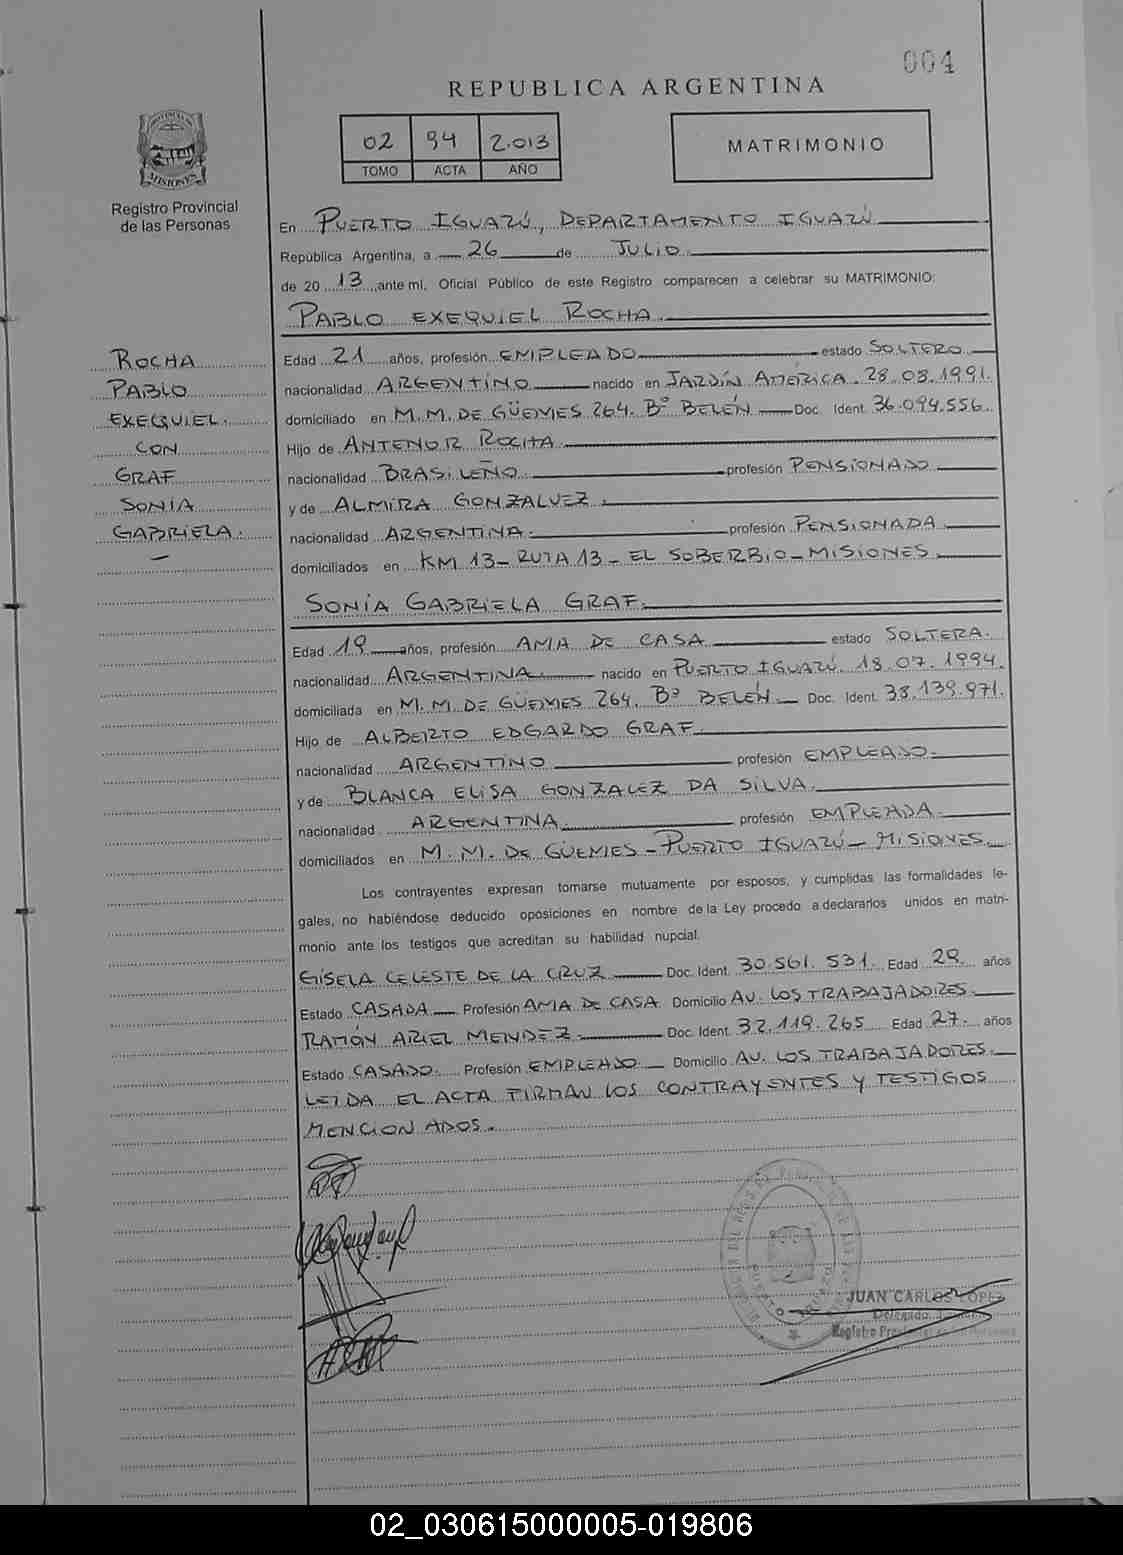 004
REPUBLICA ARGENTINA
02 94 2.013
TOMO ACTA AÑO
MATRIMONIO
PROVINCIA DE
MISIONES
Registro Provincial
de las Personas
En PUERTO IGUAZÚ, DEPARTAMENTO IGUAZÚ
República Argentina, a 26 de JULIO
de 20 13 ante mí, Oficial Público de este Registro comparecen a celebrar su MATRIMONIO:
PABLO EXEQUIEL ROCHA.
ROCHA
PABLO
EXEQUIEL.
CON
GRAF
SONIA
GABRIELA.
Edad 21 años, profesión EMPLEADO estado SOLTERO
nacionalidad ARGENTINO nacido en JARDÍN AMÉRICA. 28.08.1991.
domiciliado en M.M. DE GÜEMES 264. Bº BELÉN Doc. Ident. 36.094.556.
Hijo de ANTENOR ROCHA.
nacionalidad BRASILEÑO. profesión PENSIONADO
y de ALMIRA GONZALVEZ.
nacionalidad ARGENTINA. profesión PENSIONADA
domiciliados en KM 13 - RUTA 13 - EL SOBERBIO - MISIONES.
SONIA GABRIELA GRAF.
Edad 19 años, profesión AMA DE CASA estado SOLTERA.
nacionalidad ARGENTINA. nacido en PUERTO IGUAZÚ. 18.07.1994.
domiciliada en M.M. DE GÜEMES 264. Bº BELÉN Doc. Ident. 38.139.971.
Hijo de ALBERTO EDGARDO GRAF.
nacionalidad ARGENTINO profesión EMPLEADO.
y de BLANCA ELISA GONZALEZ DA SILVA.
nacionalidad ARGENTINA. profesión EMPLEADA.
domiciliados en M.M. DE GÜEMES - PUERTO IGUAZÚ - MISIONES.
Los contrayentes expresan tomarse mutuamente por esposos, y cumplidas las formalidades le-
gales, no habiéndose deducido oposiciones en nombre de la Ley procedo a declararlos unidos en matri-
monio ante los testigos que acreditan su habilidad nupcial.
GISELA CELESTE DE LA CRUZ Doc. Ident. 30.561.531. Edad 29. años
Estado CASADA Profesión AMA DE CASA. Domicilio AV. LOS TRABAJADORES.
RAMÓN ARIEL MENDEZ. Doc. Ident. 32.119.265 Edad 27. años
Estado CASADO. Profesión EMPLEADO. Domicilio AV. LOS TRABAJADORES.
LEIDA EL ACTA FIRMAN LOS CONTRAYENTES Y TESTIGOS
MENCIONADOS.
JUAN CARLOS LOPEZ
Delegado
Registro Provincial
02_030615000005-019806